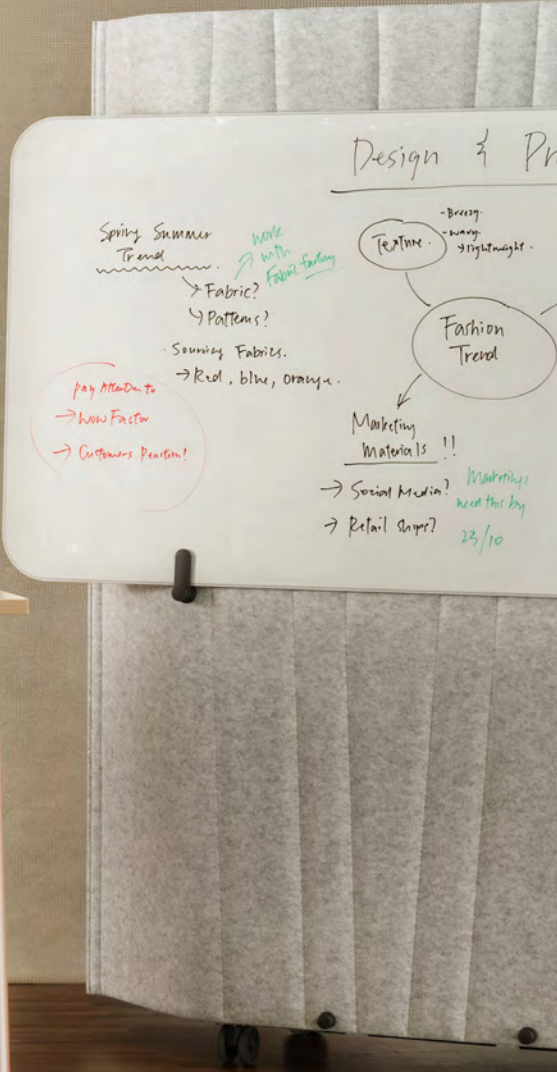 Design & Pr
Spring Summer
Trend
work
with
Fabric factory
→ Fabric?
↳ Patterns?
· Sourcing Fabrics.
→ Red, blue, orange.
pay Attention to
→ Wow Factor
→ Customers Reaction!
Texture.
- Breezy.
- wavy.
→ lightweight.
Fashion
Trend
Marketing
Materials !!
→ Social Media?
→ Retail shops?
Marketing
need this by
23/10